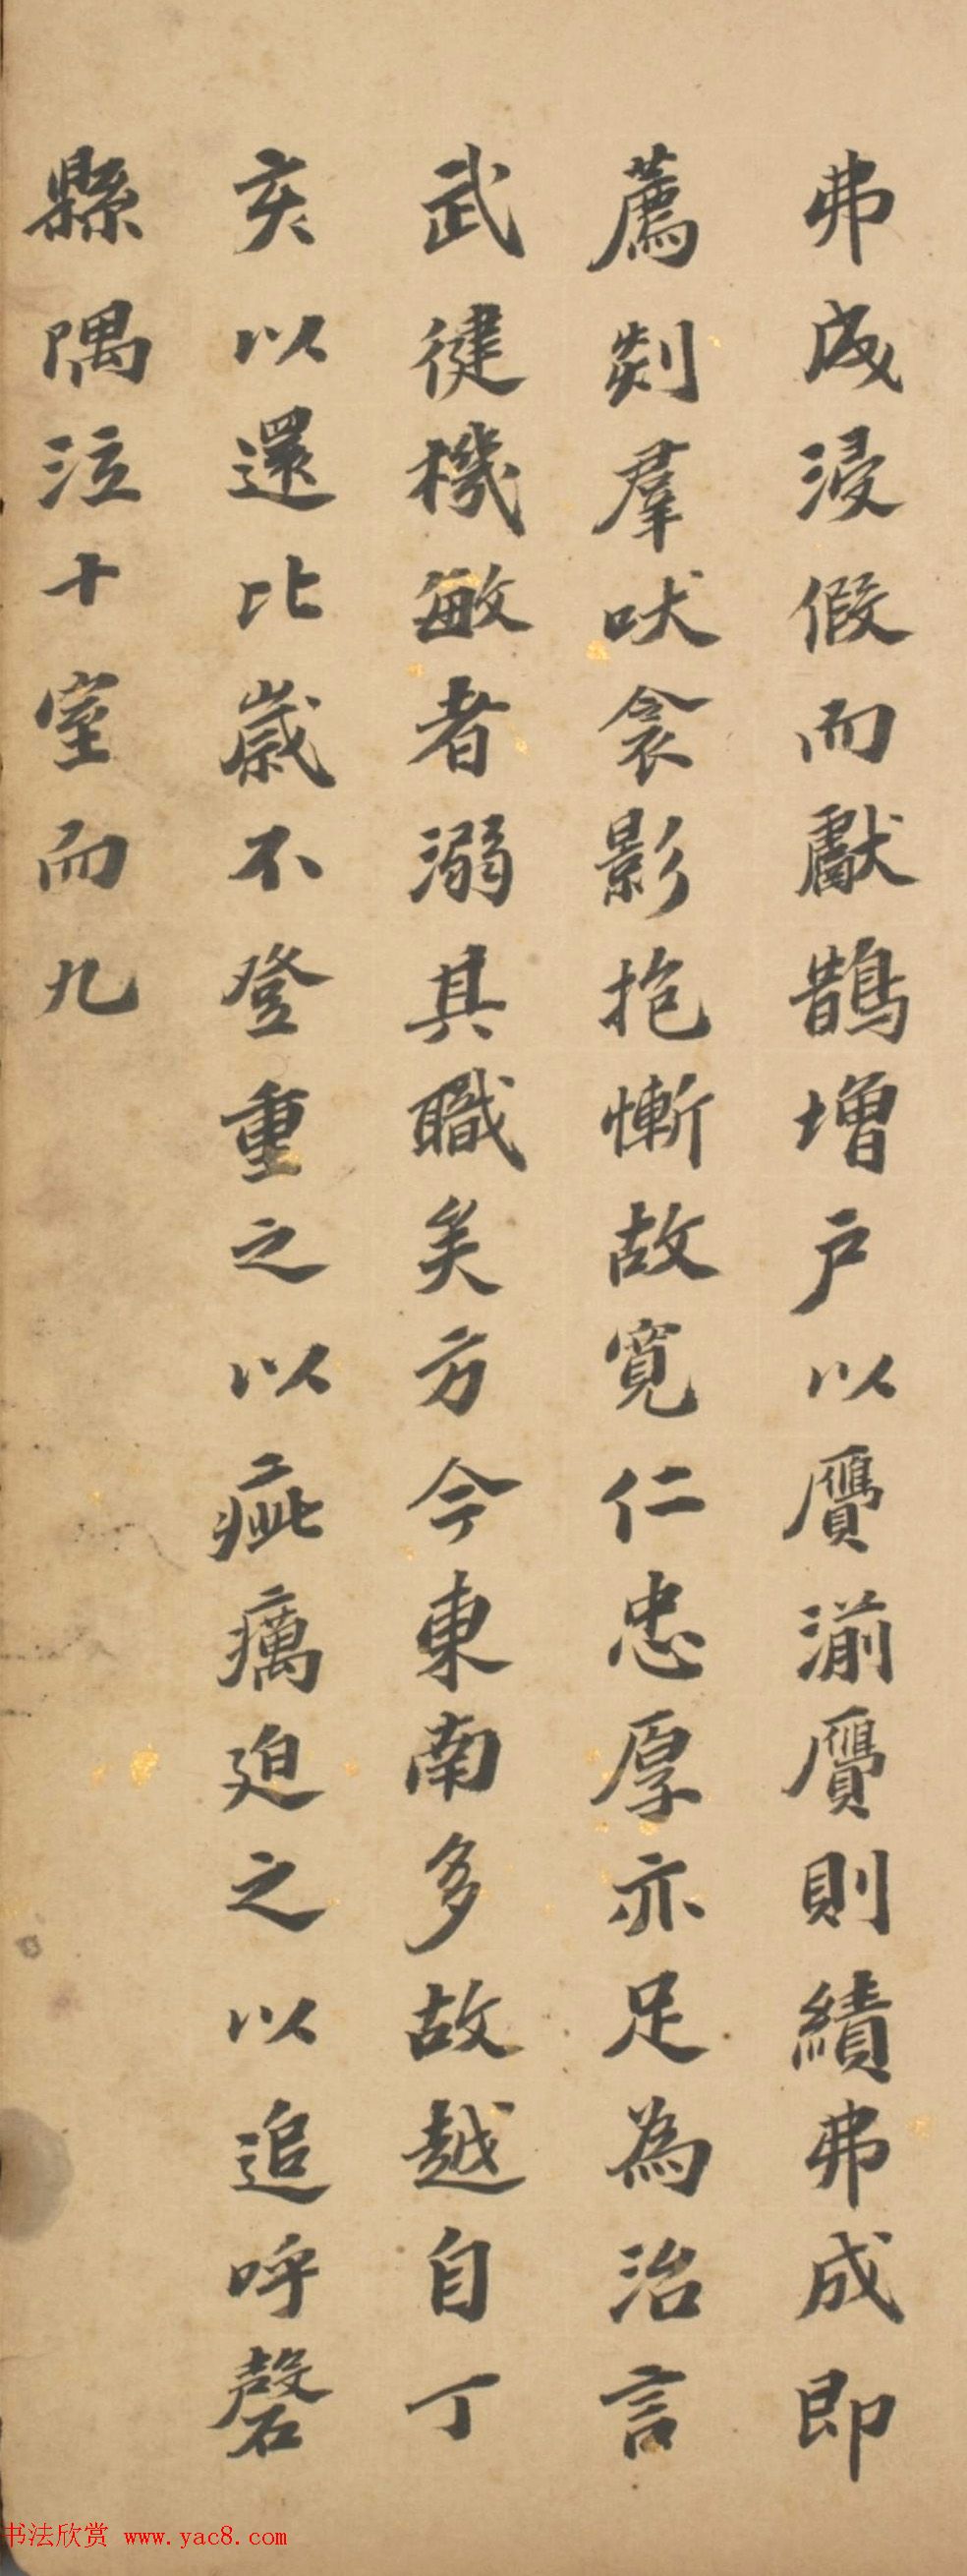 弗成浸假而獻鵲增户以贗湔贗則績弗成即
薦剡羣吠衾影抱慚故寬仁忠厚亦足為治言
武健機敏者溺其職矣方今東南多故越自丁
亥以還比歲不登重之以疵癘迫之以追呼磬
縣隅泣十室而九
书法欣赏 www.yac8.com